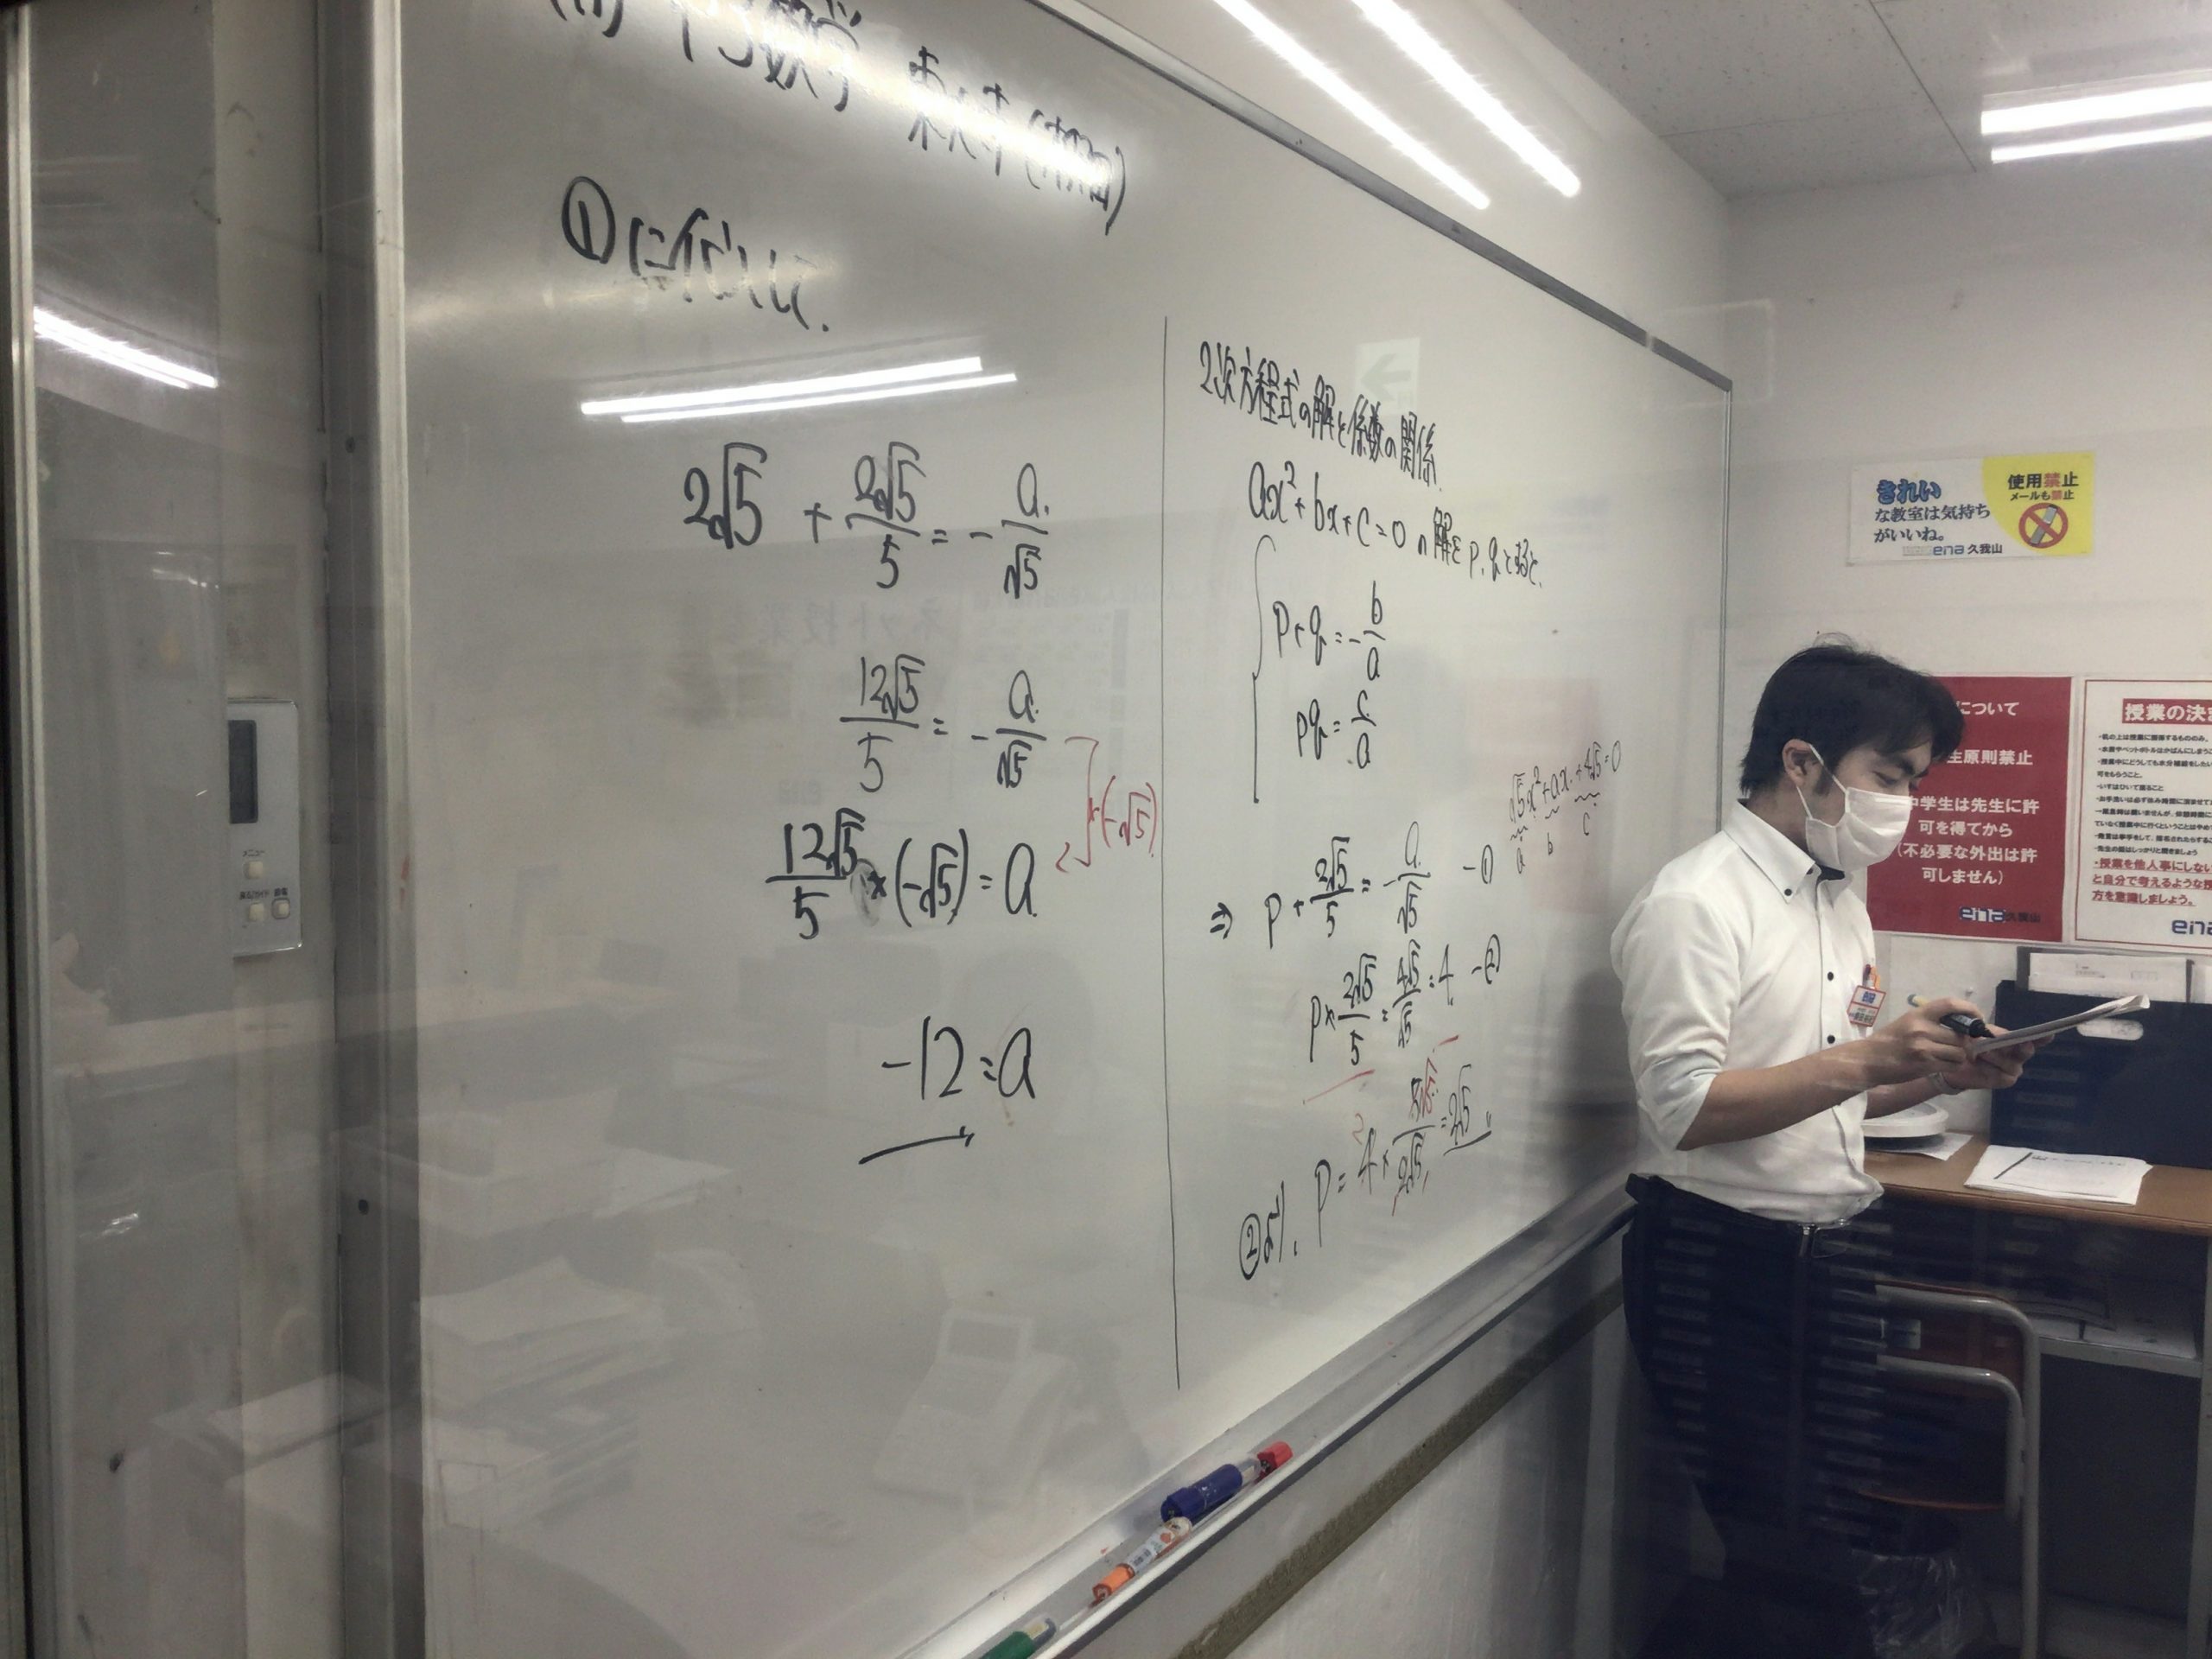 中3数学
①に代入して.
2√5 + 2√5/5 = - a/√5
12√5/5 = - a/√5
×(-√5)
12√5/5 × (-√5) = a
-12 = a
2次方程式の解と係数の関係
ax²+bx+c=0の解をp,qとすると、
p+q = - b/a
pq = c/a
√5x²+ax+4√5=0
a b c
⇒ p + 2√5/5 = - a/√5 -①
p× 2√5/5 = 4√5/√5 = 4 -②
②より, p = 4 × 5/2√5 = 2√5
きれい
な教室は気持ち
がいいね。
ena 久我山
使用禁止
メールも禁止
について
生原則禁止
中学生は先生に許
可を得てから
(不必要な外出は許
可しません)
ena 久我山
授業の決ま
・授業を他人事にしない
と自分で考えるような授
方を意識しましょう。
ena
メニュー